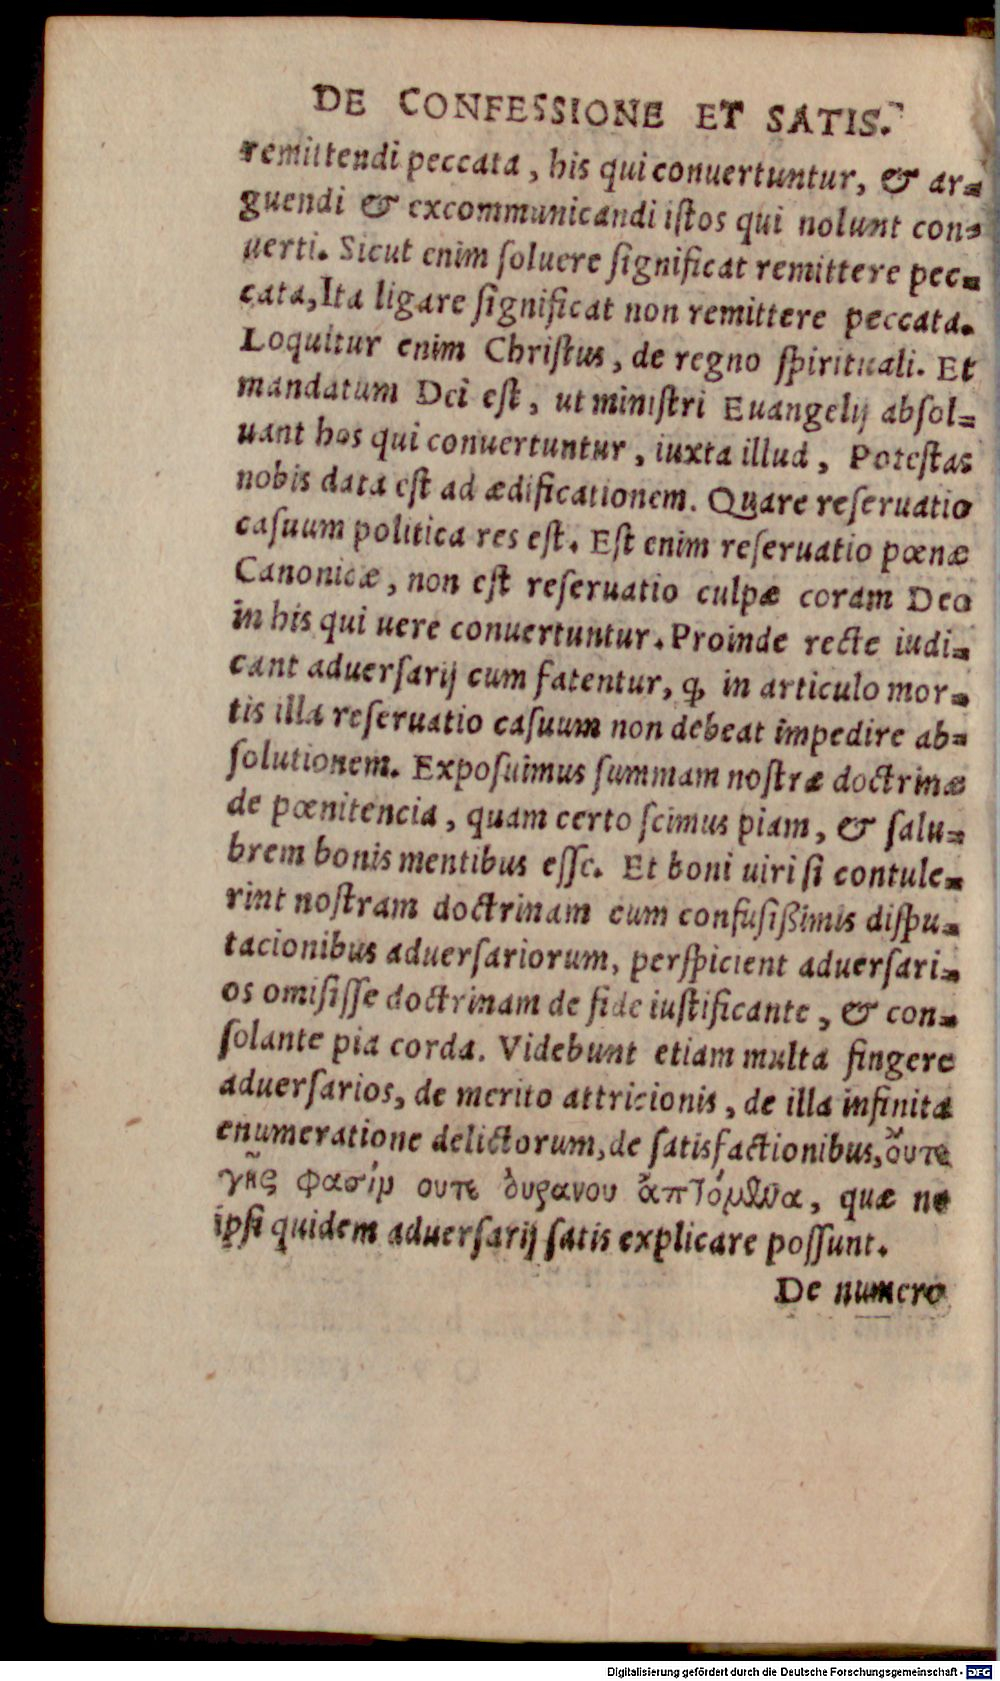 DE CONFESSIONE ET SATIS.
remittendi peccata, his qui conuertuntur, & ar-
guendi & excommunicandi istos qui nolunt con-
uerti. Sicut enim soluere significat remittere pec-
cata, Ita ligare significat non remittere peccata.
Loquitur enim Christus, de regno spirituali. Et
mandatum Dei est, ut ministri Euangelij absol-
uant hos qui conuertuntur, iuxta illud, Potestas
nobis data est ad ædificationem. Quare reseruatio
casuum politica res est. Est enim reseruatio pœnæ
Canonicæ, non est reseruatio culpæ coram Deo
in his qui uere conuertuntur. Proinde recte iudi-
cant aduersarij cum fatentur, ꝙ in articulo mor-
tis illa reseruatio casuum non debeat impedire ab-
solutionem. Exposuimus summam nostræ doctrinæ
de pœnitencia, quam certo scimus piam, & salu-
brem bonis mentibus esse. Et boni uiri si contule-
rint nostram doctrinam cum confusißimis dispu-
tacionibus aduersariorum, perspicient aduersari-
os omisisse doctrinam de fide iustificante, & con-
solante pia corda. Videbunt etiam multa fingere
aduersarios, de merito attricionis, de illa infinita
enumeratione delictorum, de satisfactionibus, οὔτε
γῆς φασίν ουτε ὀυρανου ἅπτόμενα, quæ ne
ipsi quidem aduersarij satis explicare possunt.
De numero
Digitalisierung gefördert durch die Deutsche Forschungsgemeinschaft - DFG